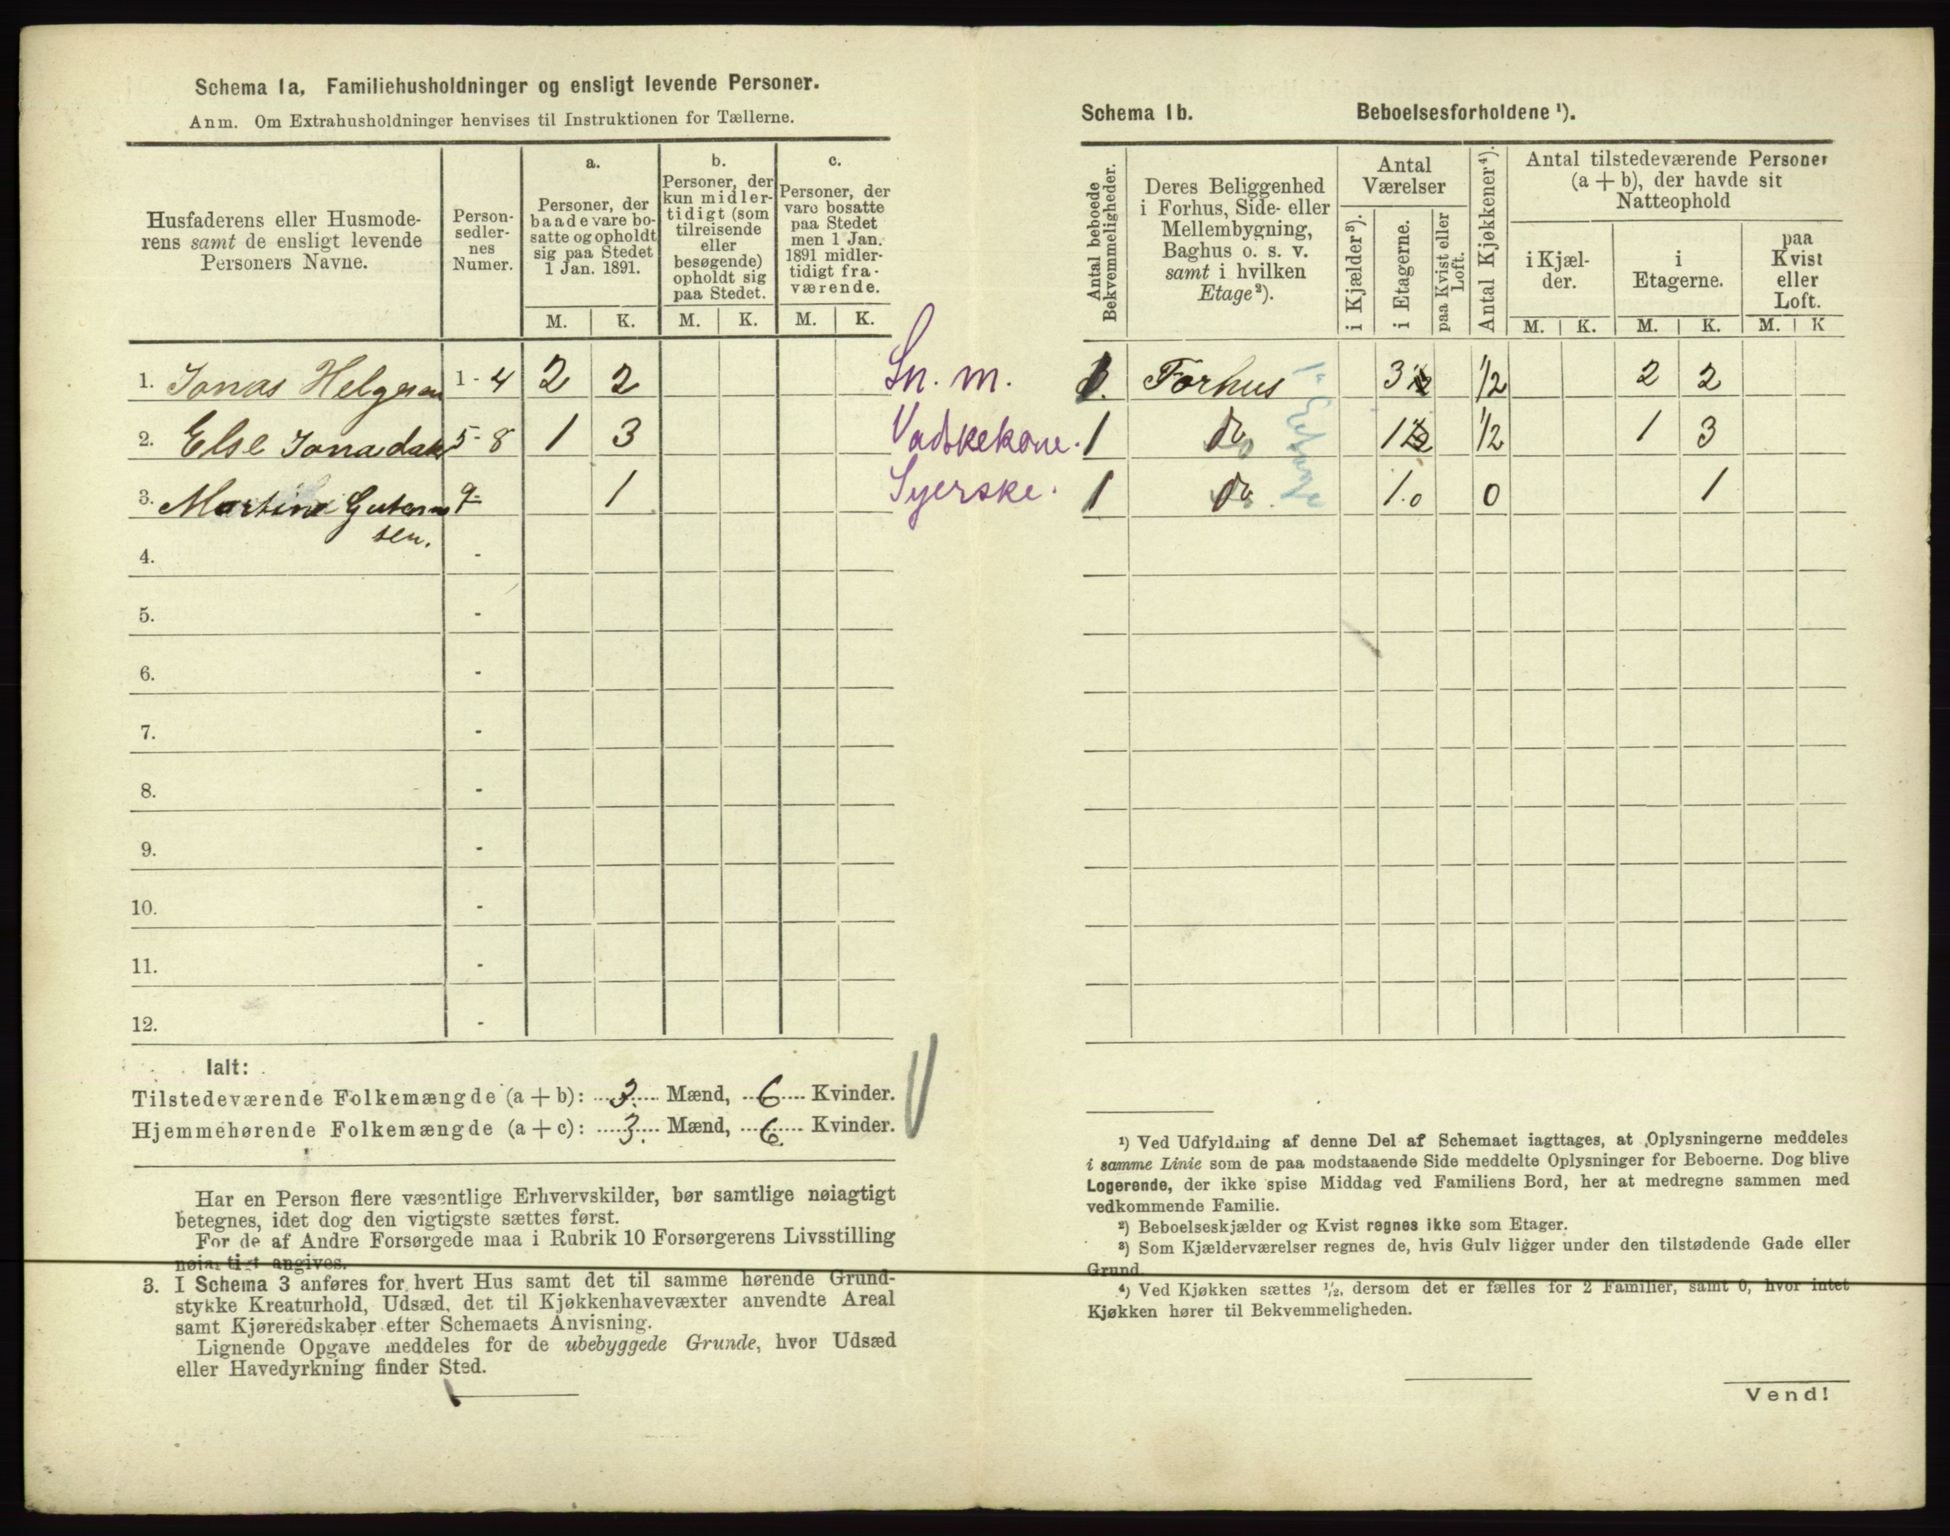 Schema 1a. Familiehusholdninger og ensligt levende Personer.
Anm. Om Extrahusholdninger henvises til Instruktionen for Tællerne.
Husfaderens eller Husmode-
rens samt de ensligt levende
Personers Navne.
Person-
sedler-
nes
Numer.
a.
Personer, der
baade vare bo-
satte og opholdt
sig paa Stedet
1 Jan. 1891.
b.
Personer, der
kun midler-
tidigt (som
tilreisende
eller
besøgende)
opholdt sig
paa Stedet.
c.
Personer, der
vare bosatte
paa Stedet
men 1 Jan.
1891 midler-
tidigt fra-
værende.
M. K. M. K. M. K.
1. Jonas Helgesen 1 - 4 2 2 Sn. m.
2. Else Jonadab 5 - 8 1 3 Vadskekone.
3. Martine Guterm 9 - 1 Syerske.
sen.
4. -
5. -
6. -
7. -
8. -
9. -
10. -
11. -
12. -
Ialt:
Tilstedeværende Folkemængde (a + b): 3. Mænd, 6 Kvinder.
Hjemmehørende Folkemængde (a + c): 3. Mænd, 6. Kvinder.
Har en Person flere væsentlige Erhvervskilder, bør samtlige nøiagtigt
betegnes, idet dog den vigtigste sættes først.
For de af Andre Forsørgede maa i Rubrik 10 Forsørgerens Livsstilling
nøiagtigt angives.
3. I Schema 3 anføres for hvert Hus samt det til samme hørende Grund-
stykke Kreaturhold, Udsæd, det til Kjøkkenhavevæxter anvendte Areal
samt Kjøreredskaber efter Schemaets Anvisning.
Lignende Opgave meddeles for de ubebyggede Grunde, hvor Udsæd
eller Havedyrkning finder Sted.
Schema 1b. Beboelsesforholdene ¹).
Antal beboede
Bekvemmeligheder.
Deres Beliggenhed
i Forhus, Side- eller
Mellembygning,
Baghus o. s. v.
samt i hvilken
Etage²).
Antal
Værelser
i Kjælder³).
i Etagerne.
paa Kvist eller
Loft.
Antal Kjøkkener⁴).
Antal tilstedeværende Personer
(a + b), der havde sit
Natteophold
i Kjæl-
der.
i
Etagerne.
paa
Kvist
eller
Loft.
M. K. M. K. M. K
1. Forhus 3 1/2 2 2
1 do 1 1/2 1 3
1 do 1.0 0 1
1. Etage
¹) Ved Udfyldning af denne Del af Schemaet iagttages, at Oplysningerne meddeles
i samme Linie som de paa modstaaende Side meddelte Oplysninger for Beboerne. Dog blive
Logerende, der ikke spise Middag ved Familiens Bord, her at medregne sammen med
vedkommende Familie.
²) Beboelseskjælder og Kvist regnes ikke som Etager.
³) Som Kjælderværelser regnes de, hvis Gulv ligger under den tilstødende Gade eller
Grund
⁴) Ved Kjøkken sættes ½, dersom det er fælles for 2 Familier, samt 0, hvor intet
Kjøkken hører til Bekvemmeligheden.
Vend!